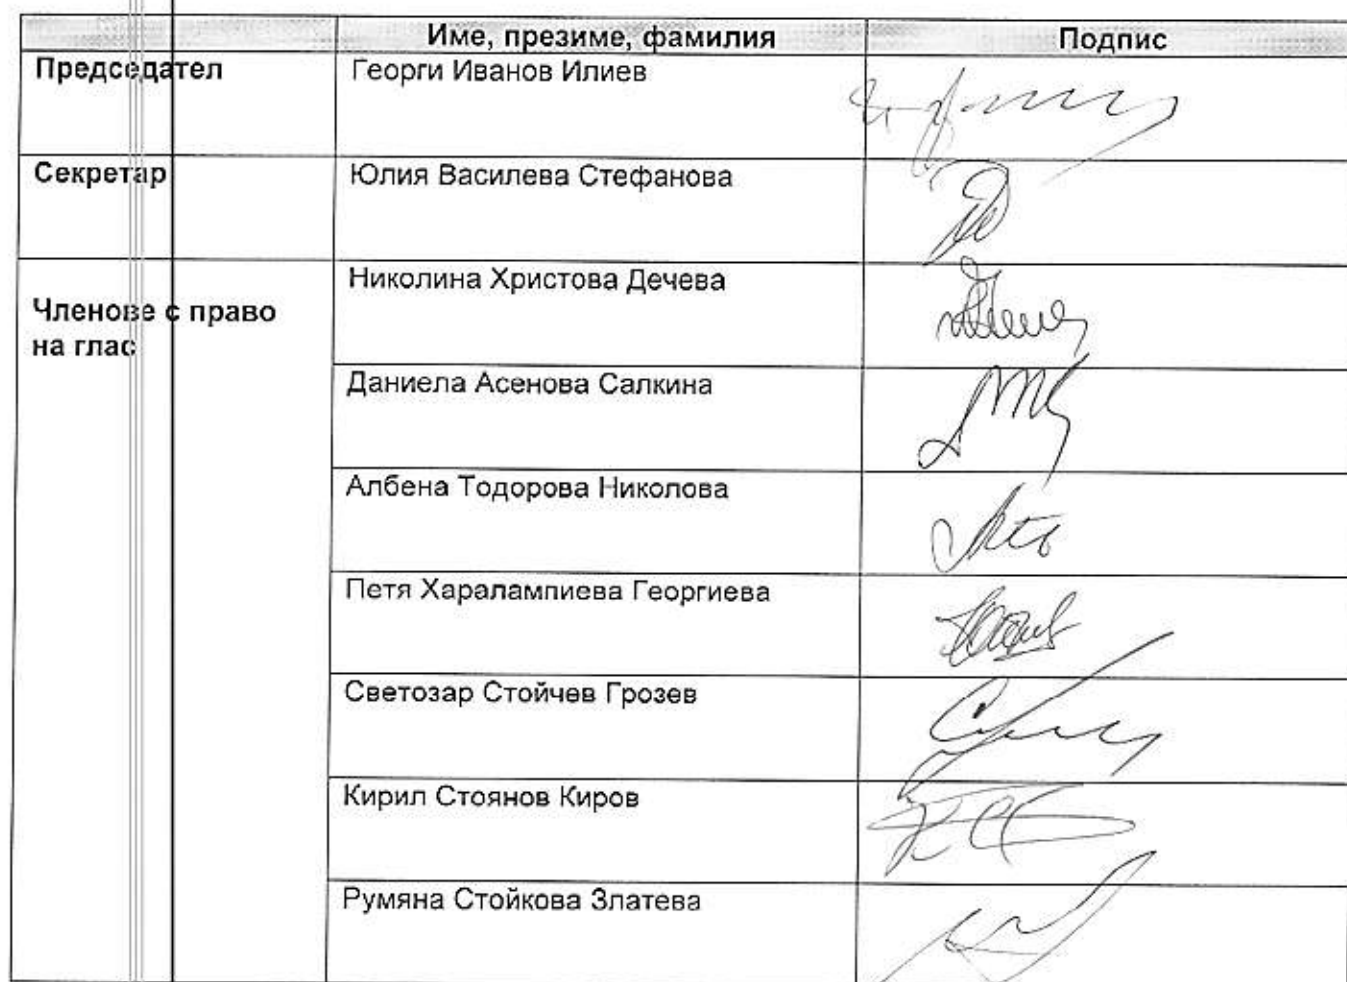 Име, презиме, фамилия Подпис
Председател Георги Иванов Илиев
Секретар Юлия Василева Стефанова
Николина Христова Дечева
Членове с право
на глас
Даниела Асенова Салкина
Албена Тодорова Николова
Петя Харалампиева Георгиева
Светозар Стойчев Грозев
Кирил Стоянов Киров
Румяна Стойкова Златева